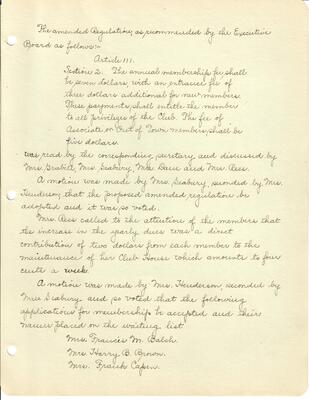 The amended Regulation, as recommended by the Executive
Board as follows:-
Article III.
Section 2. The annual membership fee shall
be seven dollars with an entrance fee of
three dollars additional for new members.
These payments, shall entitle the member
to all privileges of the Club. The fee of
Associate or Out of Town members, shall be
five dollars.
was read by the corresponding secretary and discussed by
Mrs. Seabury, Mrs. and Mrs. Rees.
A motion was made by Mrs. Seabury, seconded by Mrs.
Henderson, that the proposed amended regulation be
adopted and it was so voted.
Mrs. Rees called to the attention of the members that
the increase in the yearly dues was a direct
contribution of two dollars from each member to the
maintenance of her Club House which amounts to four
cents a week.
A motion was made by Mrs. Henderson, seconded by
Mrs. Seabury, and so voted that the following
applications for membership be accepted and their
names placed on the waiting list
Mrs. Francis M. Balch.
Mrs. Harry B. Brown.
Mrs. Frank Capen.